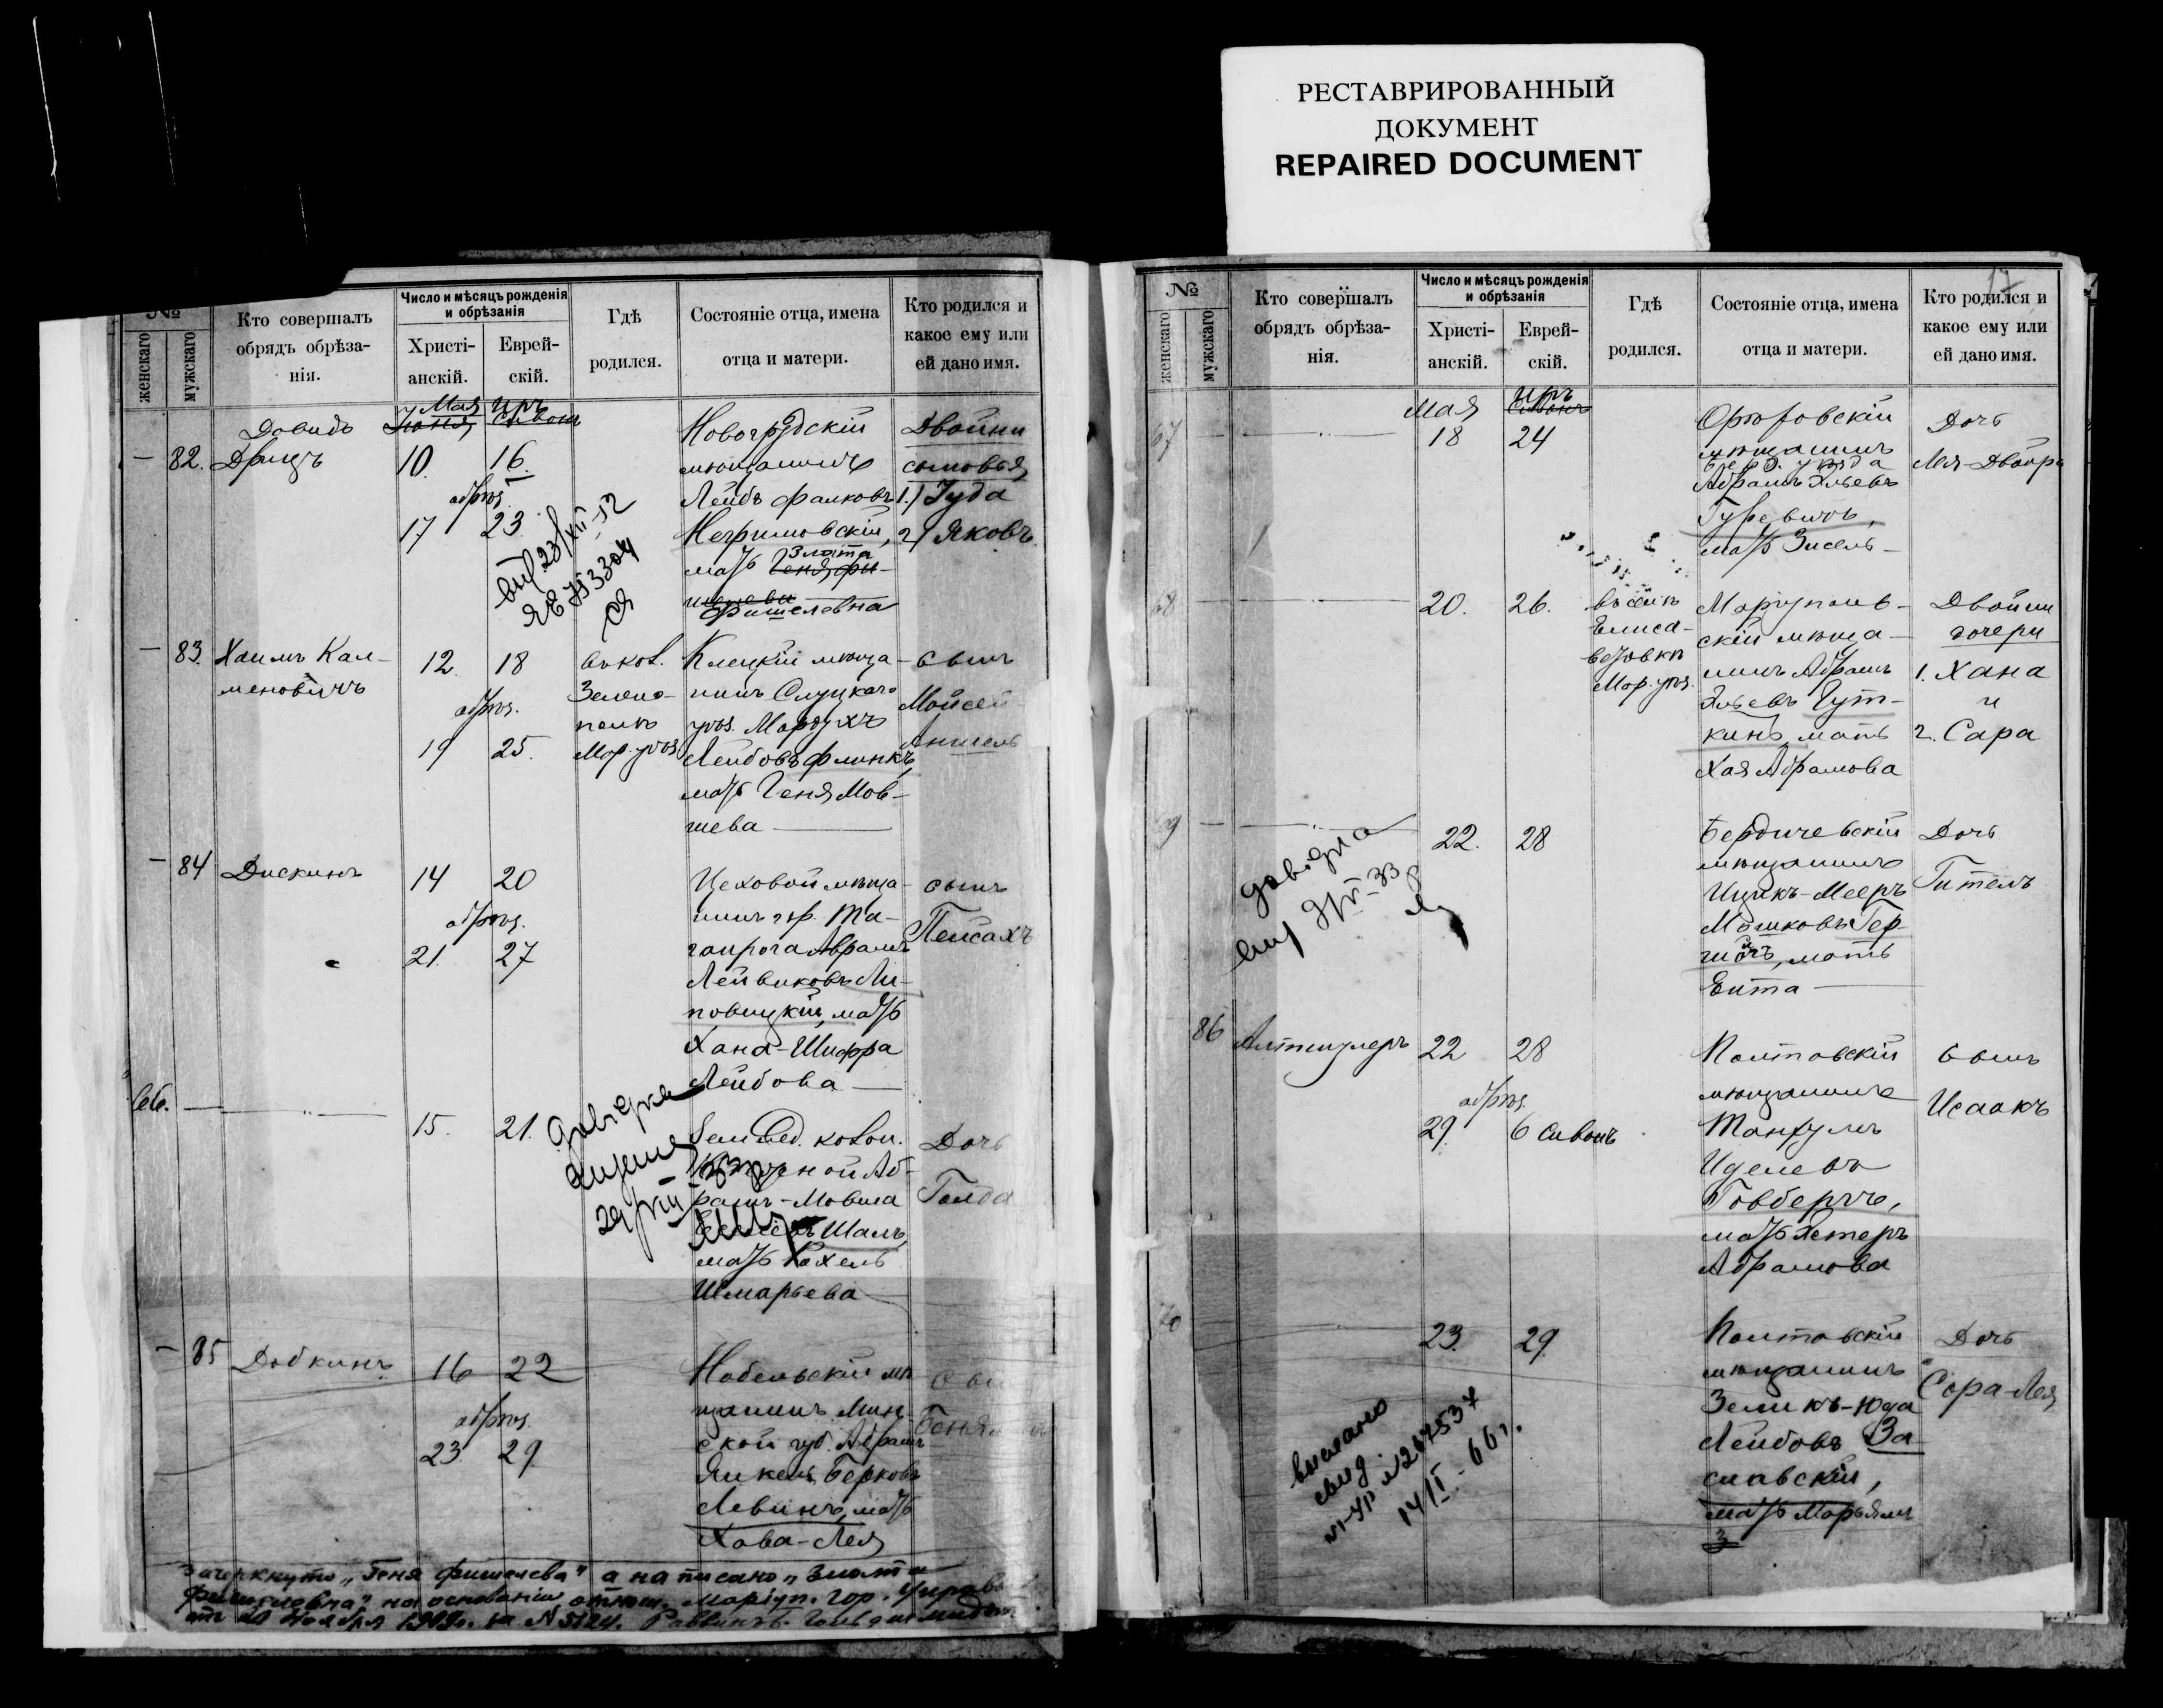 РЕСТАВРИРОВАННЫЙ
ДОКУМЕНТ
REPAIRED DOCUMENT
№
женскаго
мужскаго
Кто совершалъ
обрядъ обрѣза-
нія.
Число и мѣсяцъ рожденія
и обрѣзанія
Христі-
анскій.
Еврей-
скій.
Гдѣ
родился.
Состояніе отца, имена
отца и матери.
Кто родился и
какое ему или
ей дано имя.
— 82.
Давидъ
Дрицъ
Мая
Іюня
10.
обрѣз.
17
Иръ
Сивонъ
16.
23.
Новогрудскій
мѣщанинъ
Лейбъ Фалковъ
Негримовскій,
мать Злата
Геня Фи-
шелева
Фишелевна
Двойни
сыновья
1.) Іуда
2) Яковъ
— 83.
Хаимъ Кал-
меновичъ
12
обрѣз.
19
18
25.
въ кол.
Зелено-
полѣ
Мар. уѣз.
Клецкій мѣща-
нинъ Слуцкаго
уѣз. Мордухъ
Лейбовъ Финкъ,
мать Геня Мов-
шева
сынъ
Мойсей
Аншель
— 84
Дискинъ
14
обрѣз.
21.
20
27
Цеховой мѣща-
нинъ гор. Та-
ганрога Аврамъ
Лейвиковъ Ли-
повицкій, мать
Хана-Шифра
Лейбова
сынъ
Пейсахъ
66.
15.
21.
Аб-
рамъ-Мовша
Шамъ,
мать Рахель
Шмарьева
Дочь
Голда
— 85
Добкинъ
16
обрѣз.
23.
22
29
Нобельскій мѣ-
щанинъ Мин-
ской губ. Абрамъ
Янкель Берковъ
Левинъ, мать
Хава-Лея
Зачеркнуто „Геня Фишелева" а написано „Злата
Фишелевна" на основаніи отнош. Маріуп. гор. Управы
отъ 20 Ноября 1909г. за №5124. Раввинъ
№
женскаго
мужскаго
Кто совершалъ
обрядъ обрѣза-
нія.
Число и мѣсяцъ рожденія
и обрѣзанія
Христі-
анскій.
Еврей-
скій.
Гдѣ
родился.
Состояніе отца, имена
отца и матери.
Кто родился и
какое ему или
ей дано имя.
17
67
Мая
18
Иръ
Сивонъ
24
мѣщанинъ
Абрамъ Эльевъ
Гуревичъ,
мать Зисель
Дочь
Лея-Двойра
68
20.
26.
Елиса-
ветовкѣ
Мар. уѣз.
Маріуполь-
скій мѣща-
нинъ Абрамъ
Эльевъ Гут-
кинъ, мать
Хая Абрамова
Двойни
дочери
1. Хана
и
2. Сара
69
22.
28
Бердичевскій
мѣщанинъ
Ицикъ-Мееръ
Мошковъ Гер-
мать
Ента
Дочь
Гитель
86
Алтшулеръ
22
обрѣз.
29.
28
6 Сивонъ
Полтавскій
мѣщанинъ
Танхумъ
Иделевъ
Говберъ,
мать Эстеръ
Абрамова
Сынъ
Исаакъ
70
23.
29.
выслано
свид.
14/I-66г.
Полтавскій
мѣщанинъ
Зеликъ-Юда
Лейбовъ За-
славскій,
мать Марьямъ
Дочь
Сора-Лея